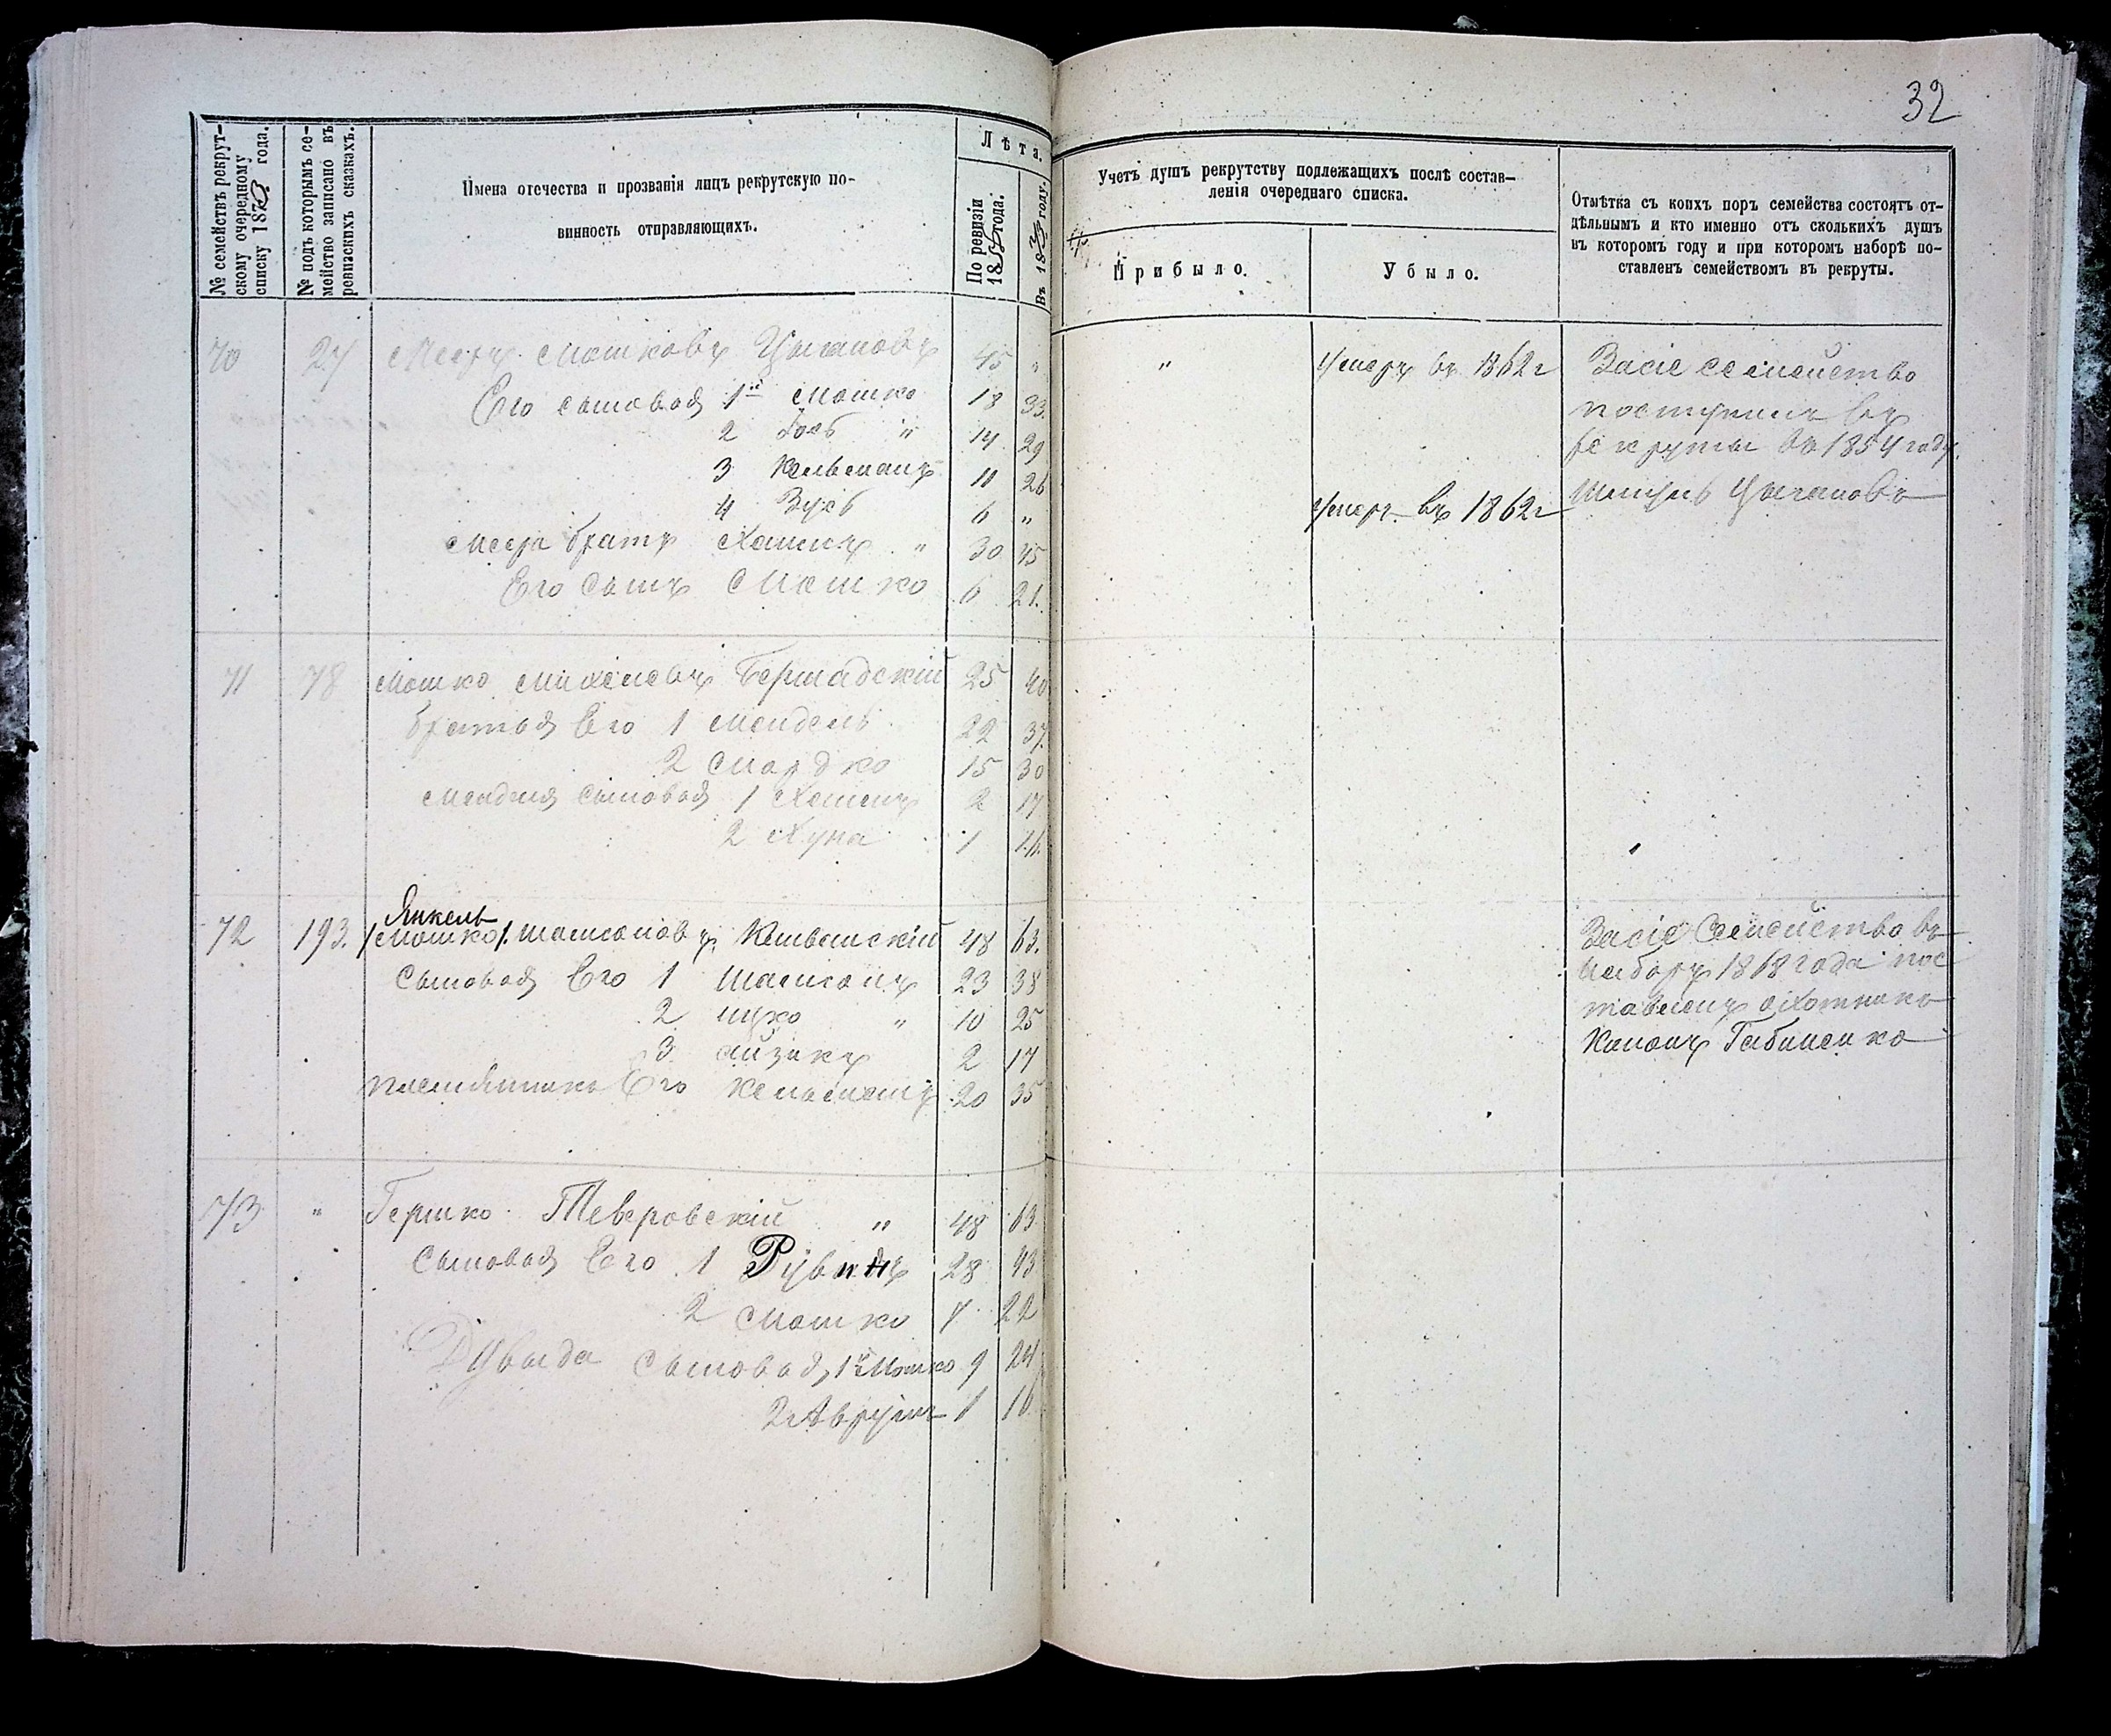 32
№ семействъ рекрут-
скому очередному
списку 187 года.
№ подъ которымъ се-
мейство записано въ
ревизскихъ сказкахъ.
Имена отечества и прозванія лицъ рекрутскую по-
винность отправляющихъ.
Лѣта.
По ревизіи
18 года.
Въ 187 году.
Учетъ душъ рекрутству подлежащихъ послѣ состав-
ленія очереднаго списка.
Прибыло.
Убыло.
Отмѣтка съ коихъ поръ семейства состоятъ от-
дѣльнымъ и кто именно отъ сколькихъ душъ
въ которомъ году и при которомъ наборѣ по-
ставленъ семействомъ въ рекруты.
70 27 Мееръ Мошковъ Цыгановъ 45 " " Умеръ въ 1862 г Засіе семейство
Его сыновья 1й Мошко 18 33. поступилъ въ
2 Іось " 14 29 рекруты въ 1854 году.
3 Кельманъ 11 26 Цыгановъ
4 Зусь 6 " умеръ въ 1862 г
Меера братъ Хаимъ " 30 45
Его сынъ Мошко 6 21.
71 78 Мошко Михелевъ Бершадскій 25 40
братья Его 1 Мендель 22 37.
2 Мордко 15 30
Менделя сыновья 1 Хаимъ 2 17
2 Хуна 1 16.
Янкель
72 193. /Мошко/. Шамсоновъ 48 63. Засіе Семейство въ
Сыновья Его 1 Шамсонъ 23 38 наборъ 1868 года пос
2 Ицко " 10 25 тавленъ охотникъ
3 Айзикъ 2 17 
племянникъ Его Кельманъ 20 35
73 " Гершко Тверовскій " 48 63
Сыновья Его 1 28 43
2 Мошко 7 22
сыновья, 1й Мошко 9 24
2 Аврумъ 1 16